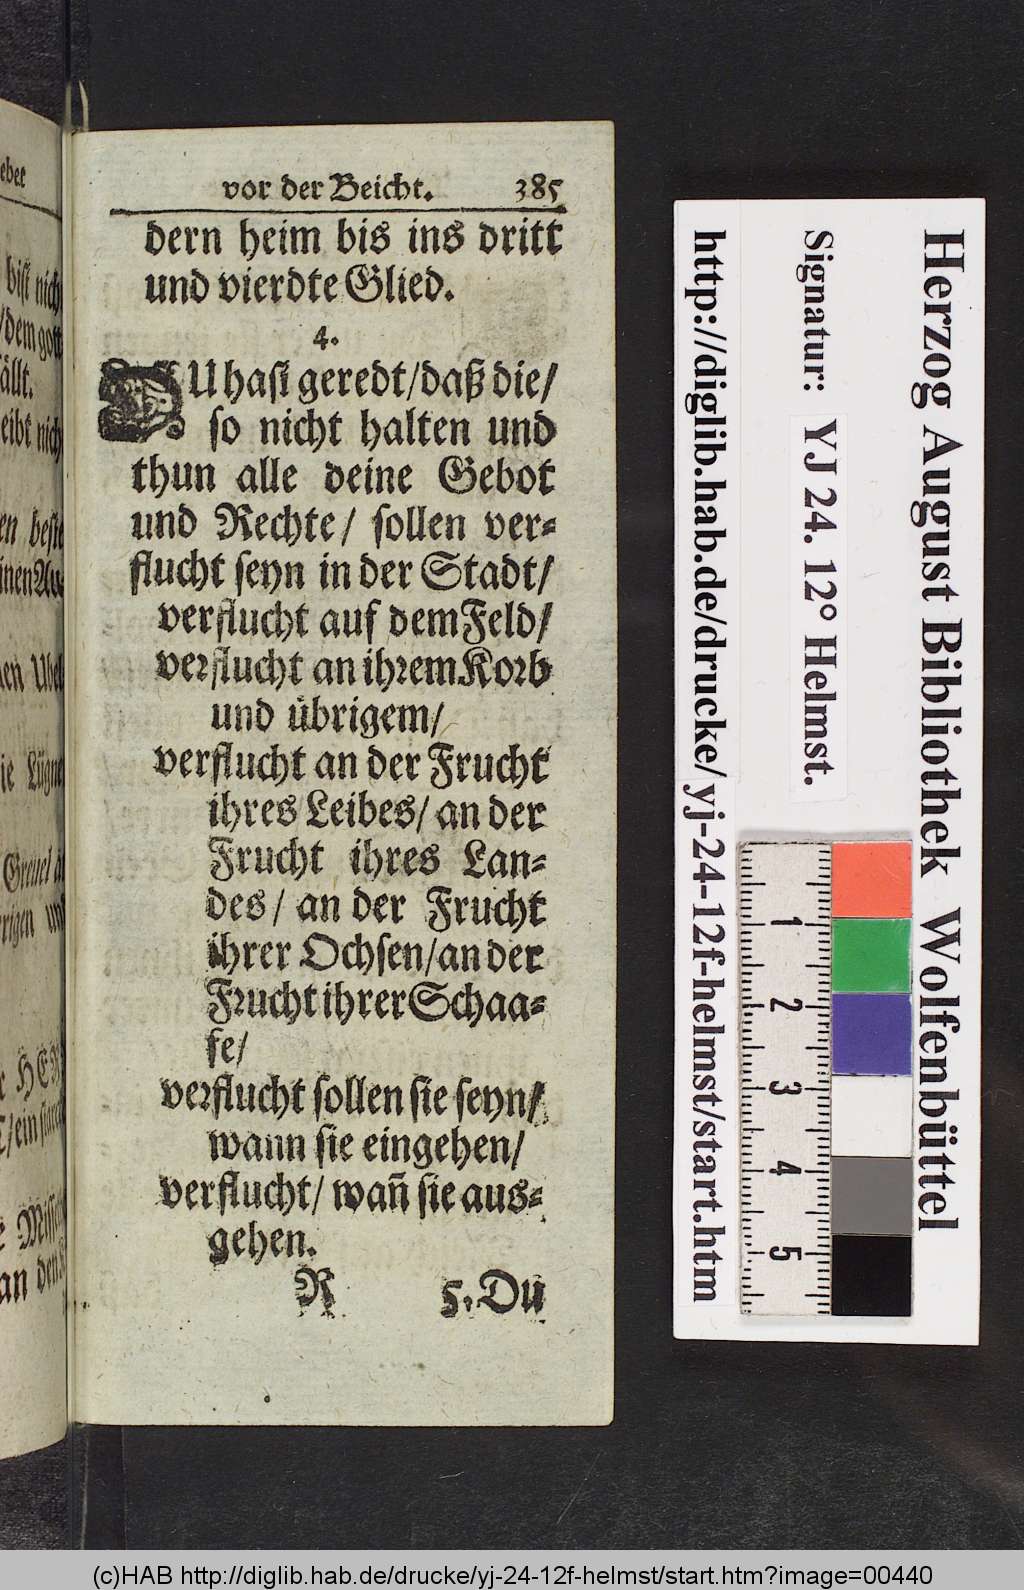 vor der Beicht. 385
dern heim bis ins dritt
und vierdte Glied.
4.
DU hast geredt/daß die/
so nicht halten und
thun alle deine Gebot
und Rechte/ sollen ver-
flucht seyn in der Stadt/
verflucht auf dem Feld/
verflucht an ihrem Korb
und übrigem/
verflucht an der Frucht
ihres Leibes/ an der
Frucht ihres Lan-
des/ an der Frucht
ihrer Ochsen/an der
Frucht ihrer Schaa-
fe/
verflucht sollen sie seyn/
wann sie eingehen/
verflucht/ wañ sie aus-
gehen.
R 5. Du
Herzog August Bibliothek Wolfenbüttel
Signatur: YJ 24. 12° Helmst.
http://diglib.hab.de/drucke/yj-24-12f-helmst/start.htm
1
2
3
4
5
(c)HAB http://diglib.hab.de/drucke/yj-24-12f-helmst/start.htm?image=00440